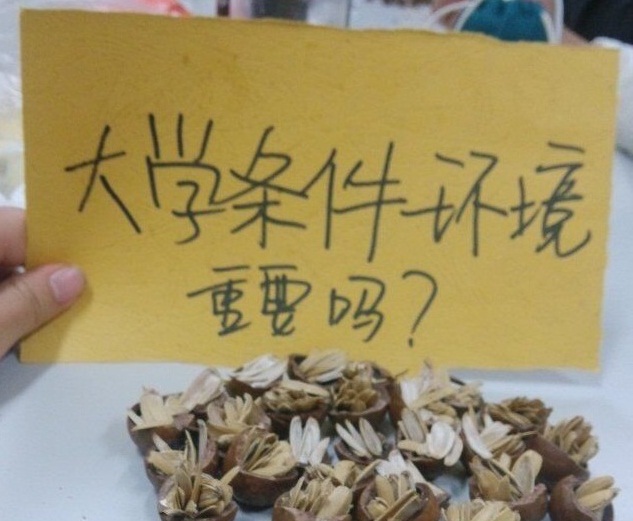 大学条件环境
重要吗?